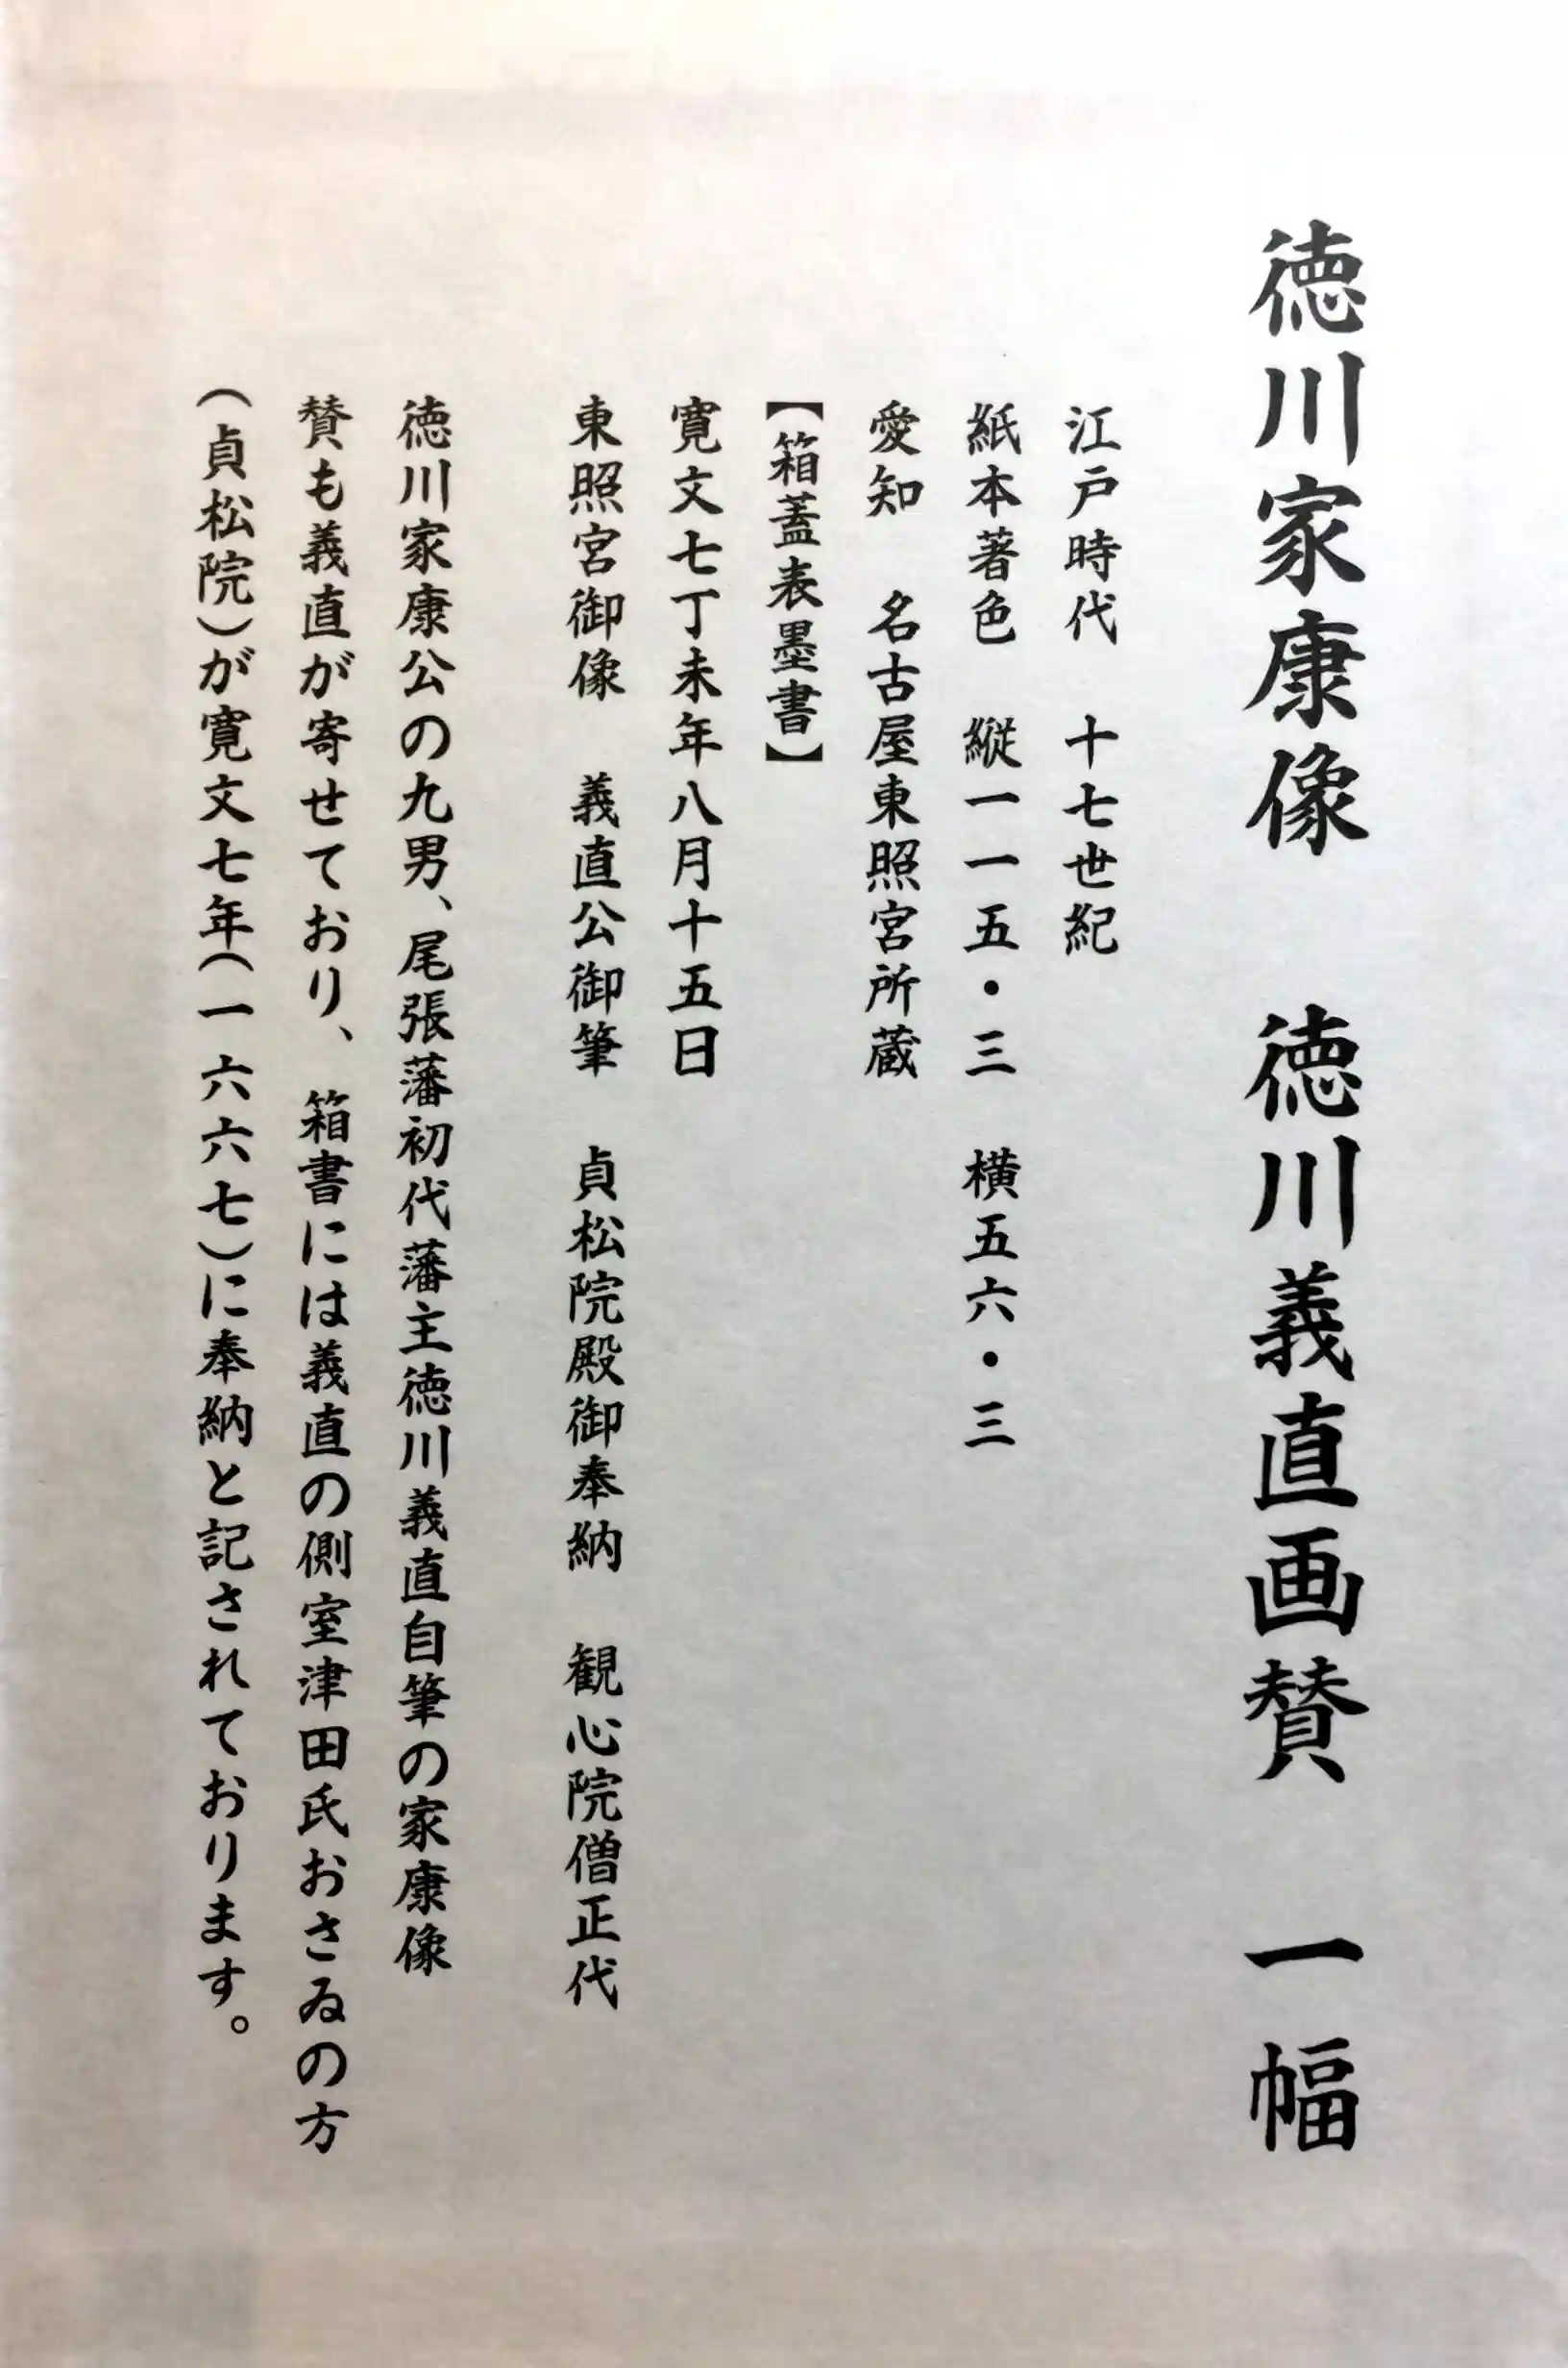 徳川家康像　徳川義直画賛　一幅
江戸時代　十七世紀
紙本著色　縦一一五・三　横五六・三
愛知　名古屋東照宮所蔵
【箱蓋表墨書】
寛文七丁未年八月十五日
東照宮御像　義直公御筆　貞松院殿御奉納　観心院僧正代
徳川家康公の九男、尾張藩初代藩主徳川義直自筆の家康像
賛も義直が寄せており、箱書には義直の側室津田氏おさゐの方
（貞松院）が寛文七年（一六六七）に奉納と記されております。